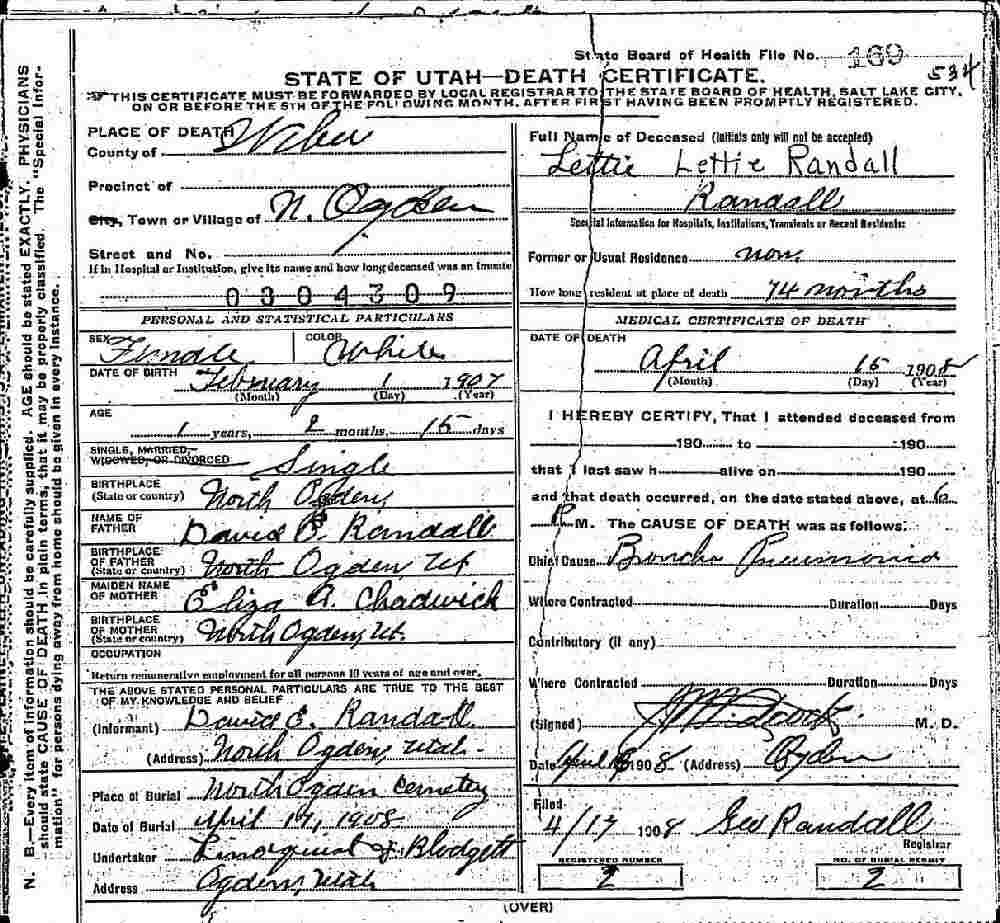 State Board of Health File No. 169
534
STATE OF UTAH—DEATH CERTIFICATE.
THIS CERTIFICATE MUST BE FORWARDED BY LOCAL REGISTRAR TO THE STATE BOARD OF HEALTH, SALT LAKE CITY,
ON OR BEFORE THE 5TH OF THE FOLLOWING MONTH, AFTER FIRST HAVING BEEN PROMPTLY REGISTERED.
N. B.—Every item of information should be carefully supplied. AGE should be stated EXACTLY. PHYSICIANS
should state CAUSE OF DEATH in plain terms, that it may be properly classified. The "Special Infor-
mation" for persons dying away from home should be given in every instance.
PLACE OF DEATH
County of Weber
Precinct of
City, Town or Village of N. Ogden
Street and No.
If in Hospital or Institution, give its name and how long deceased was an inmate
0304309
PERSONAL AND STATISTICAL PARTICULARS
SEX Female COLOR White
DATE OF BIRTH February 1 1907
(Month) (Day) (Year)
AGE
1 years, 2 months, 15 days
SINGLE, MARRIED,
WIDOWED, OR DIVORCED Single
BIRTHPLACE
(State or country) North Ogden
NAME OF
FATHER David Randall
BIRTHPLACE
OF FATHER
(State or country) North Ogden, Ut
MAIDEN NAME
OF MOTHER Eliza A. Chadwick
BIRTHPLACE
OF MOTHER
(State or country) North Ogden, Ut.
OCCUPATION
Return remunerative employment for all persons 10 years of age and over.
THE ABOVE STATED PERSONAL PARTICULARS ARE TRUE TO THE BEST
OF MY KNOWLEDGE AND BELIEF
(Informant) David E. Randall
(Address) North Ogden, Utah
Place of Burial North Ogden Cemetery
Date of Burial April 17, 1908
Undertaker Lindquist & Blodgett
Address Ogden, Utah
Full Name of Deceased (Initials only will not be accepted)
Lettie Lettie Randall
Randall
Special Information for Hospitals, Institutions, Transients or Recent Residents:
Former or Usual Residence
How long resident at place of death 14 months
MEDICAL CERTIFICATE OF DEATH
DATE OF DEATH
April 15 1908
(Month) (Day) (Year)
I HEREBY CERTIFY, That I attended deceased from
190 to 190
that I last saw h alive on 190
and that death occurred, on the date stated above, at 6
P M. The CAUSE OF DEATH was as follows:
Chief Cause Broncho Pneumonia
Where Contracted Duration Days
Contributory (if any)
Where Contracted Duration Days
(Signed) M. D.
Date April 1908 (Address) Ogden
Filed
4/17 1908 Geo Randall
Registrar
REGISTERED NUMBER
2
NO. OF BURIAL PERMIT
2
(OVER)